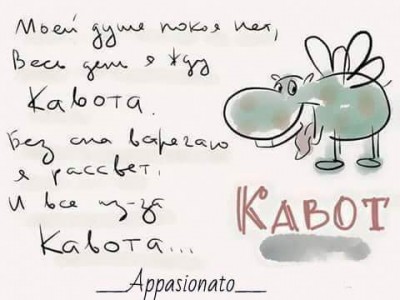 Моей душе покоя нет,
Весь день я жду
Кавота.
Без сна встречаю
я рассвет.
И все из-за
Кавота...
КАВОТ
__Appasionato__